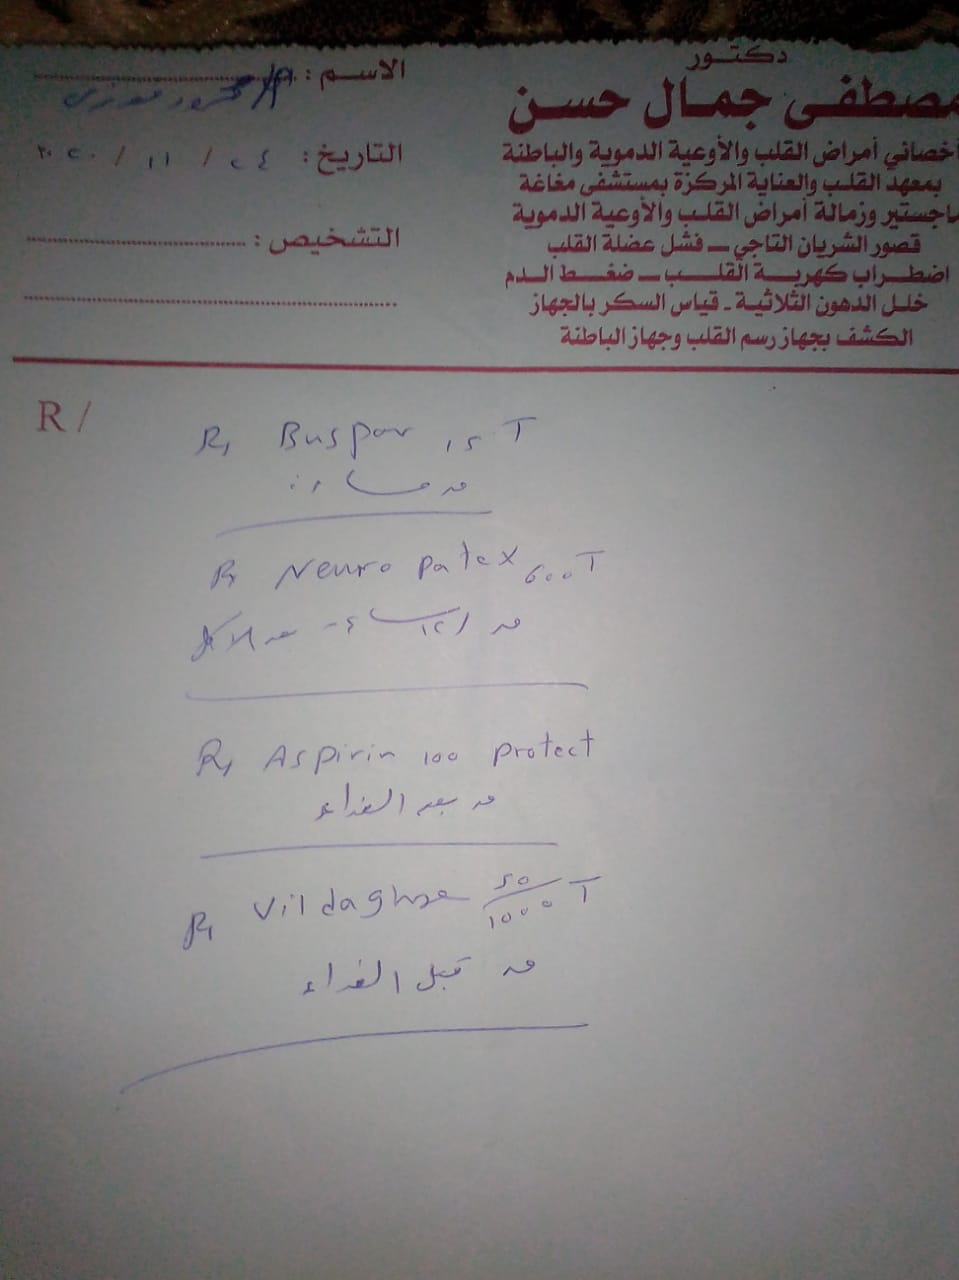 دكتور
مصطفى جمال حسن
أخصائي أمراض القلب والأوعية الدموية والباطنة
بمعهد القلب والعناية المركزة بمستشفى مغاغة
ماجستير وزمالة أمراض القلب والأوعية الدموية
قصور الشريان التاجي - فشل عضلة القلب
اضطراب كهربة القلب - ضغط الدم
خلل الدهون الثلاثية - قياس السكر بالجهاز
الكشف بجهاز رسم القلب وجهاز الباطنة
الاسم :
التاريخ : ٢٤ / ١١ / ٢٠٢٠
التشخيص :
R /
R, Buspar 15 T
R, Neuro patex 600 T
R, Aspirin 100 protect
بعد الغداء
R, 50/1000 T
قبل الغداء